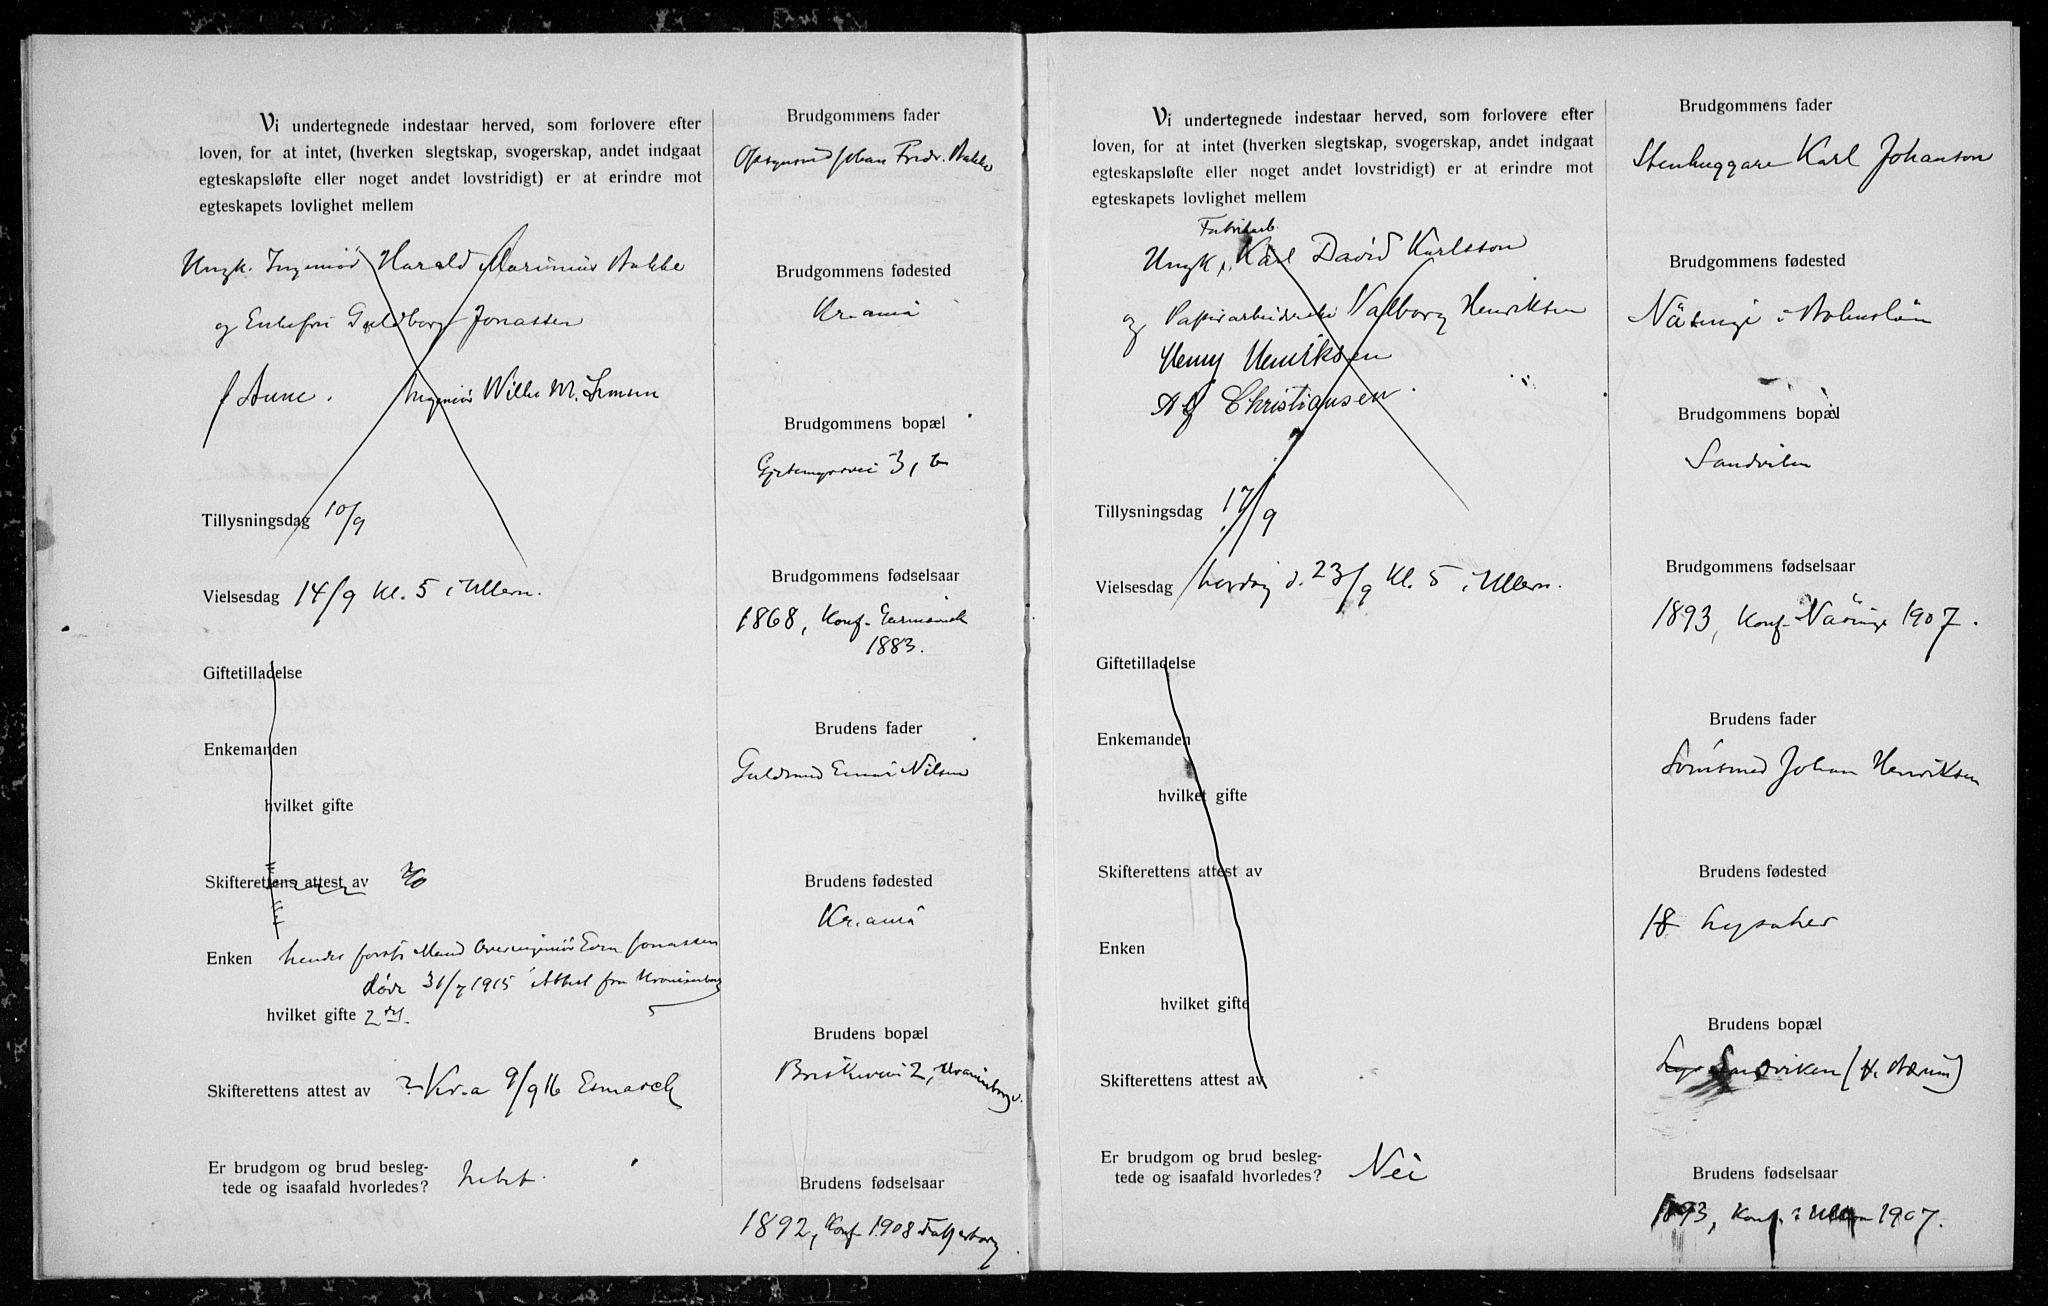 Vi undertegnede indestaar herved, som forlovere efter
loven, for at intet, (hverken slegtskap, svogerskap, andet indgaat
egteskapsløfte eller noget andet lovstridigt) er at erindre mot
egteskapets lovlighet mellem
Ungk. Ingeniør Harald Marinius Bakke
og Enkefru Guldborg Jonassen
Ingeniør Wilh. M.
Tillysningsdag 10/9
Vielsesdag 14/9 kl. 5 i Ullern.
Giftetilladelse
Enkemanden
hvilket gifte
Skifterettens attest av
Enken hendes første Mand Overingeniør Jonassen
døde 31/7 1915 Attest fra Uranienborg
hvilket gifte 2det.
Skifterettens attest av Kr.a 9/9 16 Esmarch
Er brudgom og brud besleg-
tede og isaafald hvorledes?
Brudgommens fader
Johan Fredr. Bakke
Brudgommens fødested
Kr.ania
Brudgommens bopæl
3, b
Brudgommens fødselsaar
1868, Konf.
1883.
Brudens fader
Guldsmed Einar Nilsen
Brudens fødested
Kr.ania
Brudens bopæl
Briskevei 2, Uranienborg
Brudens fødselsaar
1892, Konf. 1908 Fagerborg
Vi undertegnede indestaar herved, som forlovere efter
loven, for at intet, (hverken slegtskap, svogerskap, andet indgaat
egteskapsløfte eller noget andet lovstridigt) er at erindre mot
egteskapets lovlighet mellem
Fabrikarb.
Ungk. Karl David Karlsson
og Papirarbeiderske Valborg Henriksen
Henry Henriksen
Alf Christiansen.
Tillysningsdag 17/9
Vielsesdag Lørdag d. 23/9 Kl. 5 i Ullern.
Giftetilladelse
Enkemanden
hvilket gifte
Skifterettens attest av
Enken
hvilket gifte
Skifterettens attest av
Er brudgom og brud besleg-
tede og isaafald hvorledes? Nei
Brudgommens fader
Stenhuggare Karl Johanson
Brudgommens fødested
Näsinge i Bohuslän
Brudgommens bopæl
Sandviken
Brudgommens fødselsaar
1893, Konf. Näsinge 1907.
Brudens fader
Johan Henriksen
Brudens fødested
18 Lysaker
Brudens bopæl
Lys Sandviken (V. Bærum)
Brudens fødselsaar
1893, Konf. i Ullern 1907.